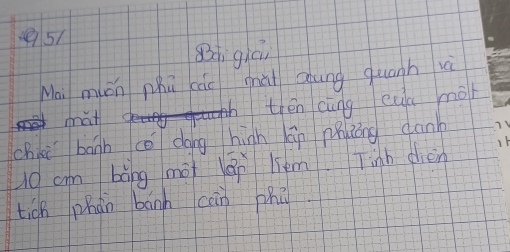 51
Bài giải
Mai muốn phủ các mặt xung quanh và
mặt trên cùng của một
chiếc bánh có dạng hình lập phương cạnh
10 cm bằng một lớp kem. Tính diện
tích phần bánh cần phủ.